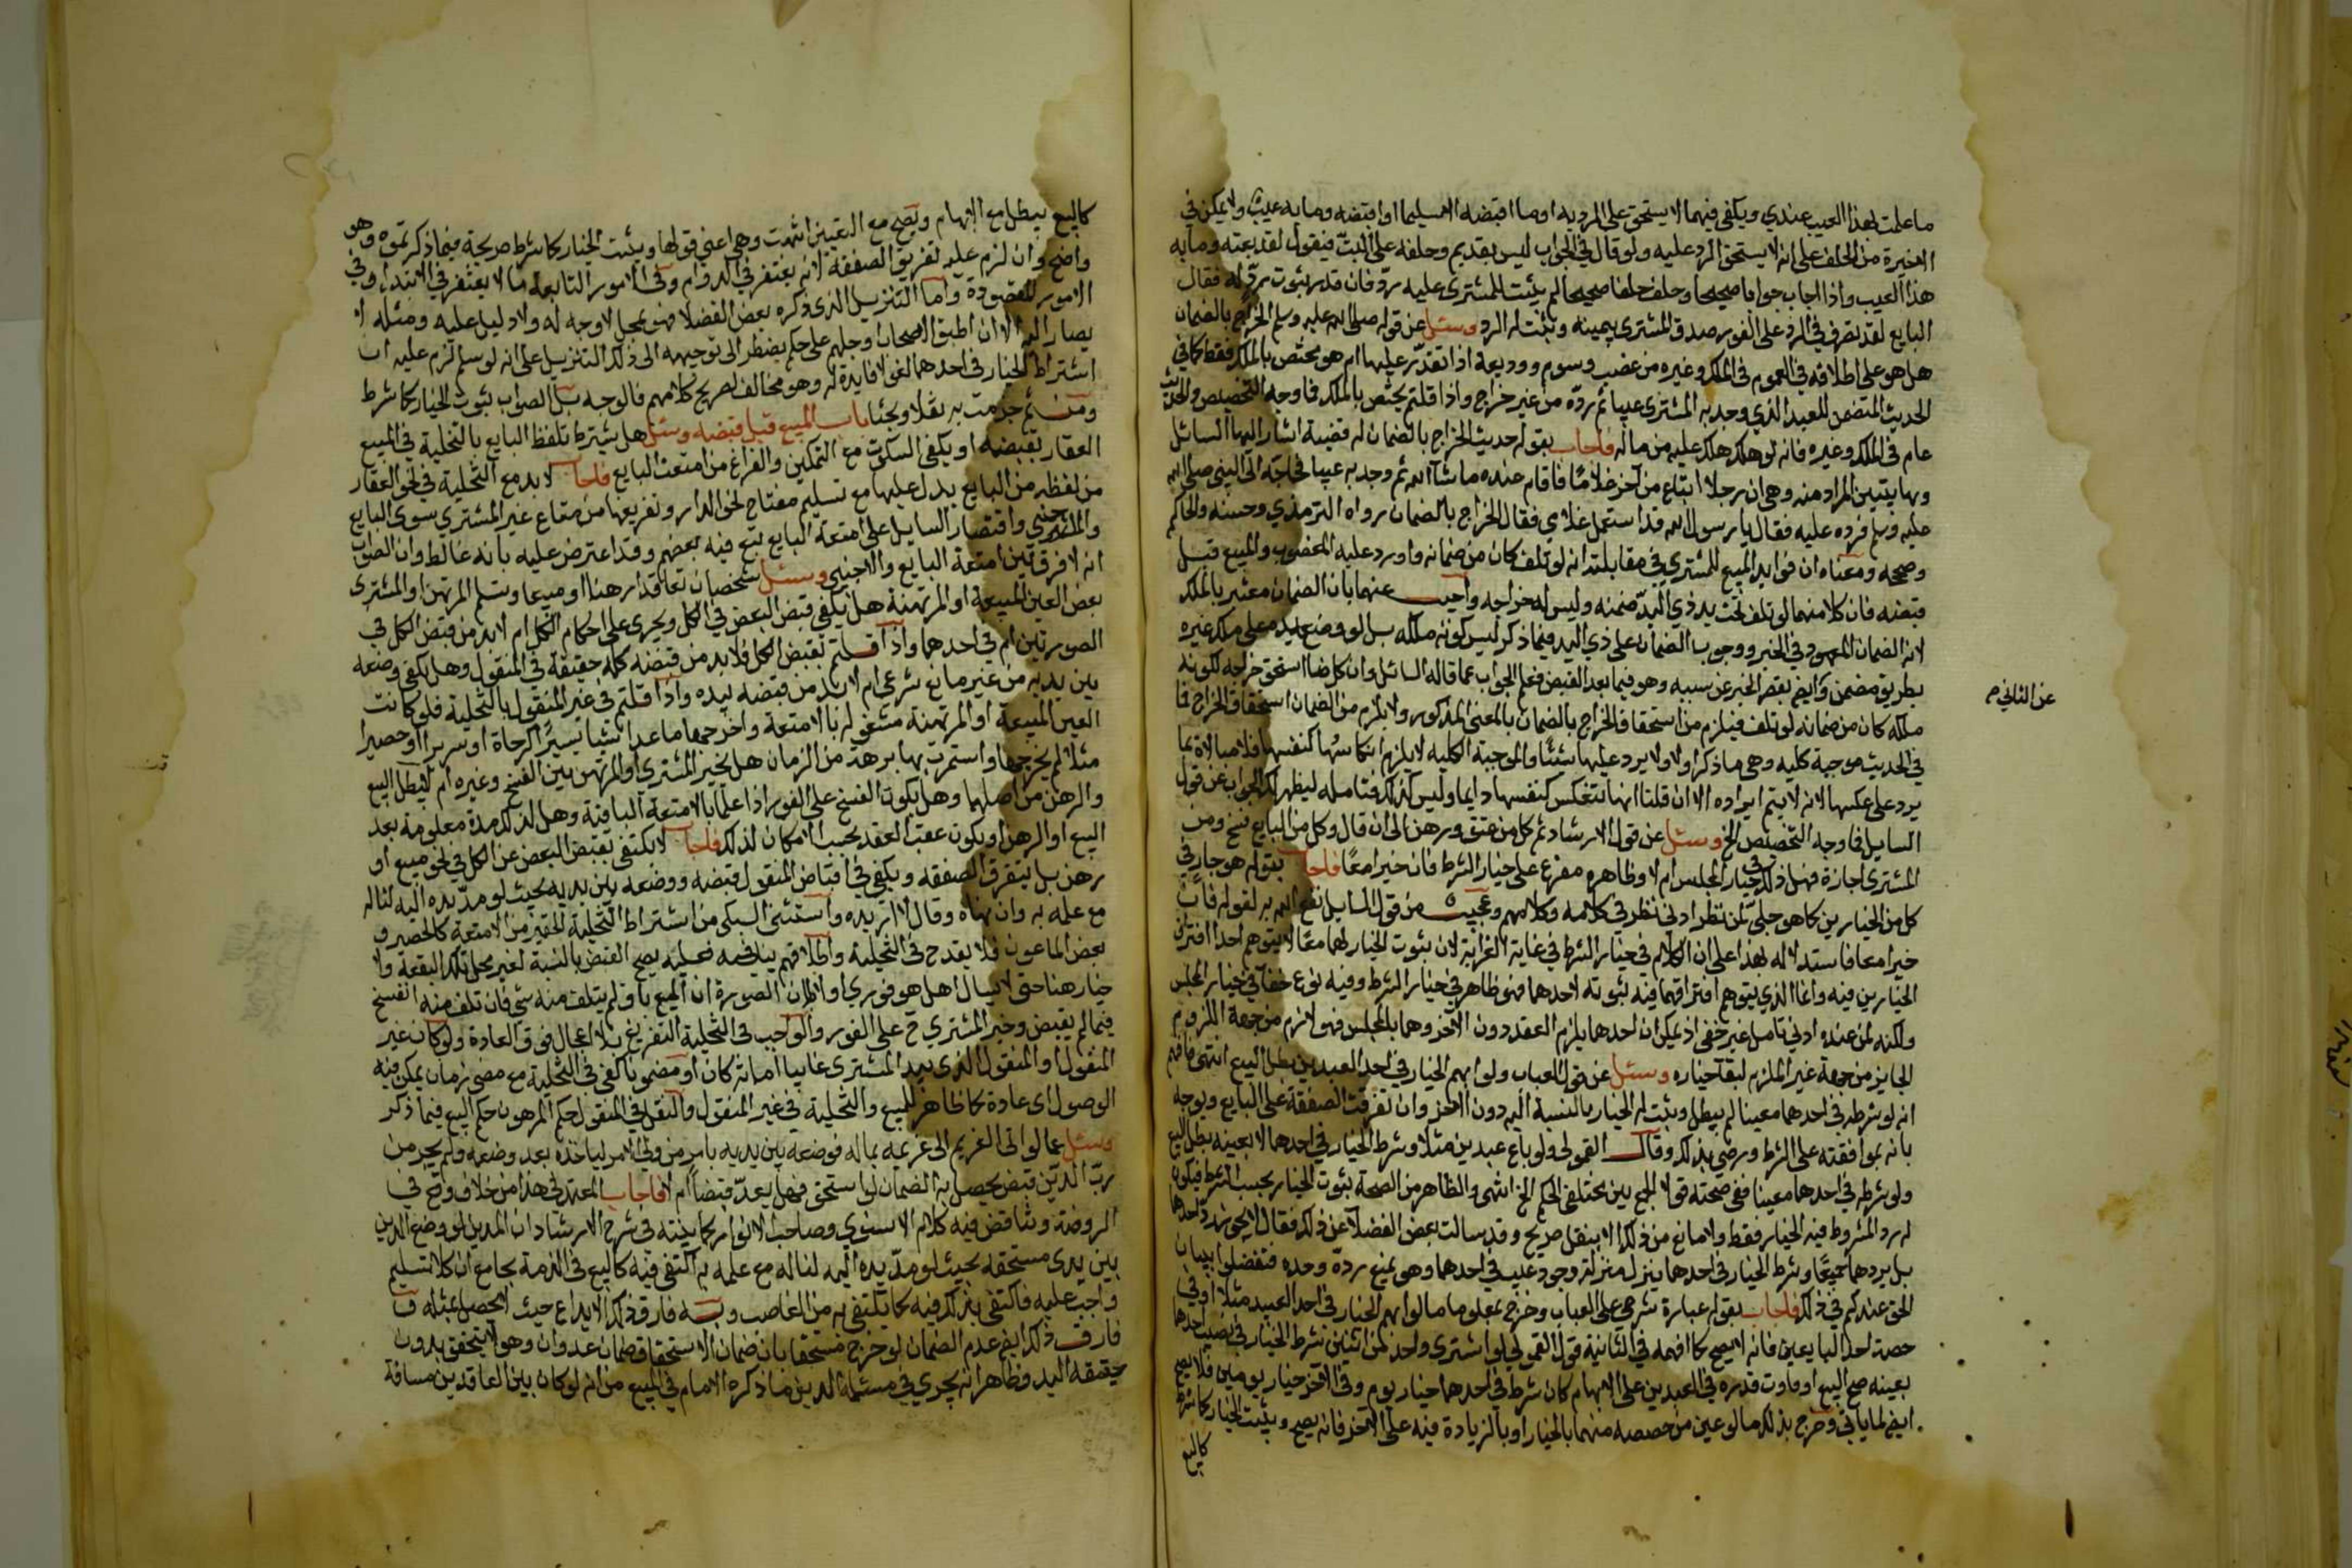 ما علمت بهذا العيب عندي ويكفي فيهما لا يستحق على الرد به او ما اقبضته الا سليما او اقبضته وما به عيب ولا يمكن في
الاخيرة من الحلف على انه لا يستحق الرد عليه ولو قال في الجواب ليس بقديم وحلفه على البت فيقول لقد بعته وما به
هذا العيب واذا اجاب جوابا صحيحا وحلف حلفا صحيحا لم يثبت للمشتري عليه رد فان قدر ثبوت رد له فقال
البايع لقد تصرف في الرد على الفور صدق المشتري بيمينه وثبت له الرد وسئل عن قوله صلى الله عليه وسلم الخراج بالضمان
هل هو على اطلاقه في العموم في الملك وغيره من غصب وسوم ووديعة اذا تعدى عليها ام هو مختص بالملك فقط كما في
الحديث المتضمن للعبد الذي وجد به المشتري عيبا ثم رده من غير خراج واذا قلتم يختص بالملك فما وجه التخصيص والحديث
عام في الملك وغيره فانه لو هلك هلك عليه من ماله فاجاب بقوله حديث الخراج بالضمان له قضية اشار اليها السائل
وبها يتبين المراد منه وهي ان رجلا ابتاع من آخر غلاما فاقام عنده ما شاء الله ثم وجد به عيبا فخاصمه الى النبي صلى الله
عليه وسلم فرده عليه فقال يا رسول الله قد استعمل غلامي فقال الخراج بالضمان رواه الترمذي وحسنه والحاكم
وصححه ومعناه ان فوايد المبيع للمشتري في مقابلة انه لو تلف كان من ضمانه واورد عليه المغصوب والمبيع قبل
قبضه فان كلا منهما لو تلف تحت يد ذي اليد ضمنه وليس له خراجه واجيب عنهما بان الضمان معتبر بالملك
لانه الضمان المعهود في الخبر ووجوب الضمان على ذي اليد فيما ذكر ليس لكونه ملكه بل لوضع يده على ملك غيره
بطريق مضمن وايضا بقصر الخبر عن سببه وهو فيما بعد القبض فعلم الجواب عما قاله السائل وان كل ما استحق خراجه لكونه
عن الثاني م
ملكه كان من ضمانه لو تلف فيلزم من استحقاق الخراج بالضمان بالمعنى المذكور ولا يلزم من الضمان استحقاق الخراج فما
في الحديث موجبة كلية وهي ما ذكر اولا ولا يرد عليها شئ والموجبة الكلية لا يلزم انعكاسها كنفسها فلا مبالاة بما
يرد على عكسها لانه لا يتم ايراده الا ان قلنا انها تنعكس كنفسها دايما وليس كذلك فتامله ليظهر لك الجواب عن قول
السايل فما وجه التخصيص الخ وسئل عن قول الارشاد ثم كل من عتق ورهن الى ان قال وكل من البايع فسخ ومن
المشتري اجازة فهل ذلك في خيار المجلس ام لا وظاهره مفرع على خيار الشرط فان خيرا معا فاجاب بقوله هو جار في
كل من الخيارين كما هو جلي لمن نظر ادنى نظر في كلامه وكلامهم وعجيب من قول السايل نفع الله به لقوله فان
خيرا معا فاستدلاله بهذا على ان الكلام في خيار الشرط في غاية الغرابة لان ثبوت الخيار لهما معا لا يتوهم احد افتراق
الخيارين فيه وانما الذي يتوهم افتراقهما فيه ثبوته لاحدهما فهو ظاهر في خيار الشرط وفيه نوع خفاء في خيار المجلس
ولكنه لمن عنده ادنى تامل غير خفي اذ يمكن ان احدهما يلزم العقد دون الاخر وهما بالمجلس فهو لازم من جهة الملزوم
الجايز من جهة غير الملزم لبقاء خياره وسئل عن قول العباب ولو ابهم الخيار في احد العبدين بطل البيع انتهى
انه لو شرطه في احدهما معينا لم يبطل ويثبت له الخيار بالنسبة اليه دون الاخر وان تفرقت الصفقة على البايع ويوجه
بانه بموافقته على الشرط ورضي بذلك وقال القمولي ولو باع عبدين مثلا وشرط الخيار في احدهما لا بعينه بطل البيع
ولو شرطه في احدهما معينا ففي صحته قولا الجمع بين مختلفي الحكم الخ انتهى والظاهر من الصحة ثبوت الخيار بحسب الشرط فيكون
له رد المشروط فيه الخيار فقط ولا مانع من ذلك الا بنقل صريح وقد سالت بعض الفضلاء عن ذلك فقال لا يجوز رد احدهما
بل يردهما جميعا وشرط الخيار في احدهما ينزل منزلة وجود عيب في احدهما وهو يمنع رده وحده فتفضلوا ببيان
الحق عندكم في ذلك فاجاب بقوله عبارة شرحي على العباب وخرج بمعلوما ما لو ابهم الخيار في احد العبيد مثلا او في
حصة احد البايعين فانه لا يصح كما افهمه في الثانية قول القمولي لو اشترى واحد من اثنين بشرط الخيار في نصيب احدهما
بعينه صح البيع او فاوت قدره في العبدين على الابهام كان شرط في احدهما خيار يوم وفي الاخر خيار يومين فلا يصح
ايضا لما ياتي وخرج بذلك ما لو عين من خصصه منهما بالخيار او بالزيادة فيه على الآخر فانه يصح ويثبت الخيار كما شرط
كالبيع
كالبيع يبطل مع الابهام ويصح مع التعيين انتهت وهي اعني قولها ويثبت الخيار كما شرط صريحة فيما ذكرتموه وهو
واضح وان لزم عليه تفريق الصفقة لانه يغتفر في الدوام وفي الامور التابعة ما لا يغتفر في الابتداء وفي
الامور المقصودة واما التنزيل الذي ذكره بعض الفضلا فهو محل لا وجه له ولا دليل عليه ومثله لا
يصار اليه الا ان اطبق الاصحاب او جلهم على حكم يضطر الى توجيهه الى ذلك التنزيل على انه لو سلم لزم عليه ان
اشتراط الخيار في احدهما لغو لا فايدة له وهو مخالف لصريح كلامهم فالوجه بل الصواب ثبوت الخيار كما شرط
ومن ثم جزمت به نقلا وبحثا باب المبيع قبل قبضه وسئل هل يشترط تلفظ البايع بالتخلية في المبيع
العقار بقبضه او يكفي السكوت مع التمكين والفراغ من امتعة البايع فاجاب لا بد مع التخلية في نحو العقار
من لفظ من البايع يدل عليها مع تسليم مفتاح نحو الدار وتفريغها من متاع غير المشتري سوى البايع
والاجنبي واقتصار السايل على امتعة البايع تبع فيه بعضهم وقد اعترض عليه بانه غالط وان الصواب
انه لا فرق بين امتعة البايع والاجنبي وسئل شخصان تعاقدا رهنا او مبيعا وتسلم المرتهن او المشتري
بعض العين المبيعة او المرتهنة هل يكفي قبض البعض في الكل ويجري على احكام الكل ام لا بد من قبض الكل في
الصورتين ام في احدهما واذا قلتم بقبض الكل فلا بد من قبضه كله حقيقة في المنقول وهل يكفي وضعه
بين يديه من غير مانع شرعي ام لا بد من قبضه بيده واذا قلتم في غير المنقول بالتخلية فلو كانت
العين المبيعة او المرتهنة مشغولة بالامتعة واخرجها ما عدا شيئا يسيرا كرحاة او سرير او حصير
مثلا لم يخرجها واستمرت بها برهة من الزمان هل يخير المشتري او المرتهن بين الفسخ وغيره ام يبطل البيع
والرهن من اصلهما وهل يكون الفسخ على الفور اذا علما بالامتعة الباقية وهل لذلك مدة معلومة بعد
البيع او الرهن او يكون عقب العقد بحسب الامكان لذلك فاجاب لا يكتفى بقبض البعض عن الكل في نحو مبيع او
رهن بل يتفرق الصفقة ويكفي في اقباض المنقول قبضه ووضعه بين يديه بحيث لو مد يده اليه لناله
مع علمه به وان نهاه وقال لا اريده واستثنى السبكي من اشتراط التخلية الحقير من الامتعة كالحصير و
بعض الماعون فلا يقدح في التخلية واطلاقهم ينافيه فعليه يصح القبض بالنسبة لغير محل تلك البقعة ولا
خيار هنا حتى لا يسال اهل هو فوري او لا لان الصورة ان المبيع باق لم يتلف منه شئ فان تلف منه انفسخ
فيما لم يقبض وخير المشتري ح على الفور والواجب في التخلية التفريغ بلا اعجال فوق العادة ولو كان غير
المنقول او المنقول الذي بيد المشتري غايبا امانة كان او مضمونا كفى في التخلية مع مضي زمان يمكن فيه
الوصول اي عادة كما ظاهر للمبيع والتخلية في غير المنقول والنقل في المنقول حكم المرهون حكم البيع فيما ذكر
وسئل عما لو اتى الغريم الى غريمه بماله فوضعه بين يديه بامر من ولي الامر لياخذه بعد وضعه ولم يجر من
رب الدين قبض يحصل به الضمان لو استحق فهل يعد قبضا ام لا فاجاب المعتمد في هذا من خلاف وقع في
الروضة وتناقض فيه كلام الاسنوي وصاحب الانوار كما بينته في شرح الارشاد ان المدين لو وضع الدين
بين يدي مستحقه بحيث لو مد يده اليه لناله مع علمه به اكتفي فيه كالبيع في الذمة بجامع ان كلا تسليم
واجب عليه فاكتفي بذلك فيه كما يكتفى به من الغاصب وبه فارق ذلك الايداع حيث لا يحصل بمثله
فارق ذلك ايضا عدم الضمان لو خرج مستحقا بان ضمان الاستحقاق ضمان عدوان وهو لا يتحقق بدون
حقيقة اليد وظاهر انه يجري في مسئلة الدين ما ذكره الامام في المبيع من انه لو كان بين العاقدين مسافة